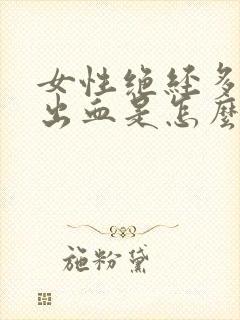 女性绝经多
出血是怎麼
施粉黛